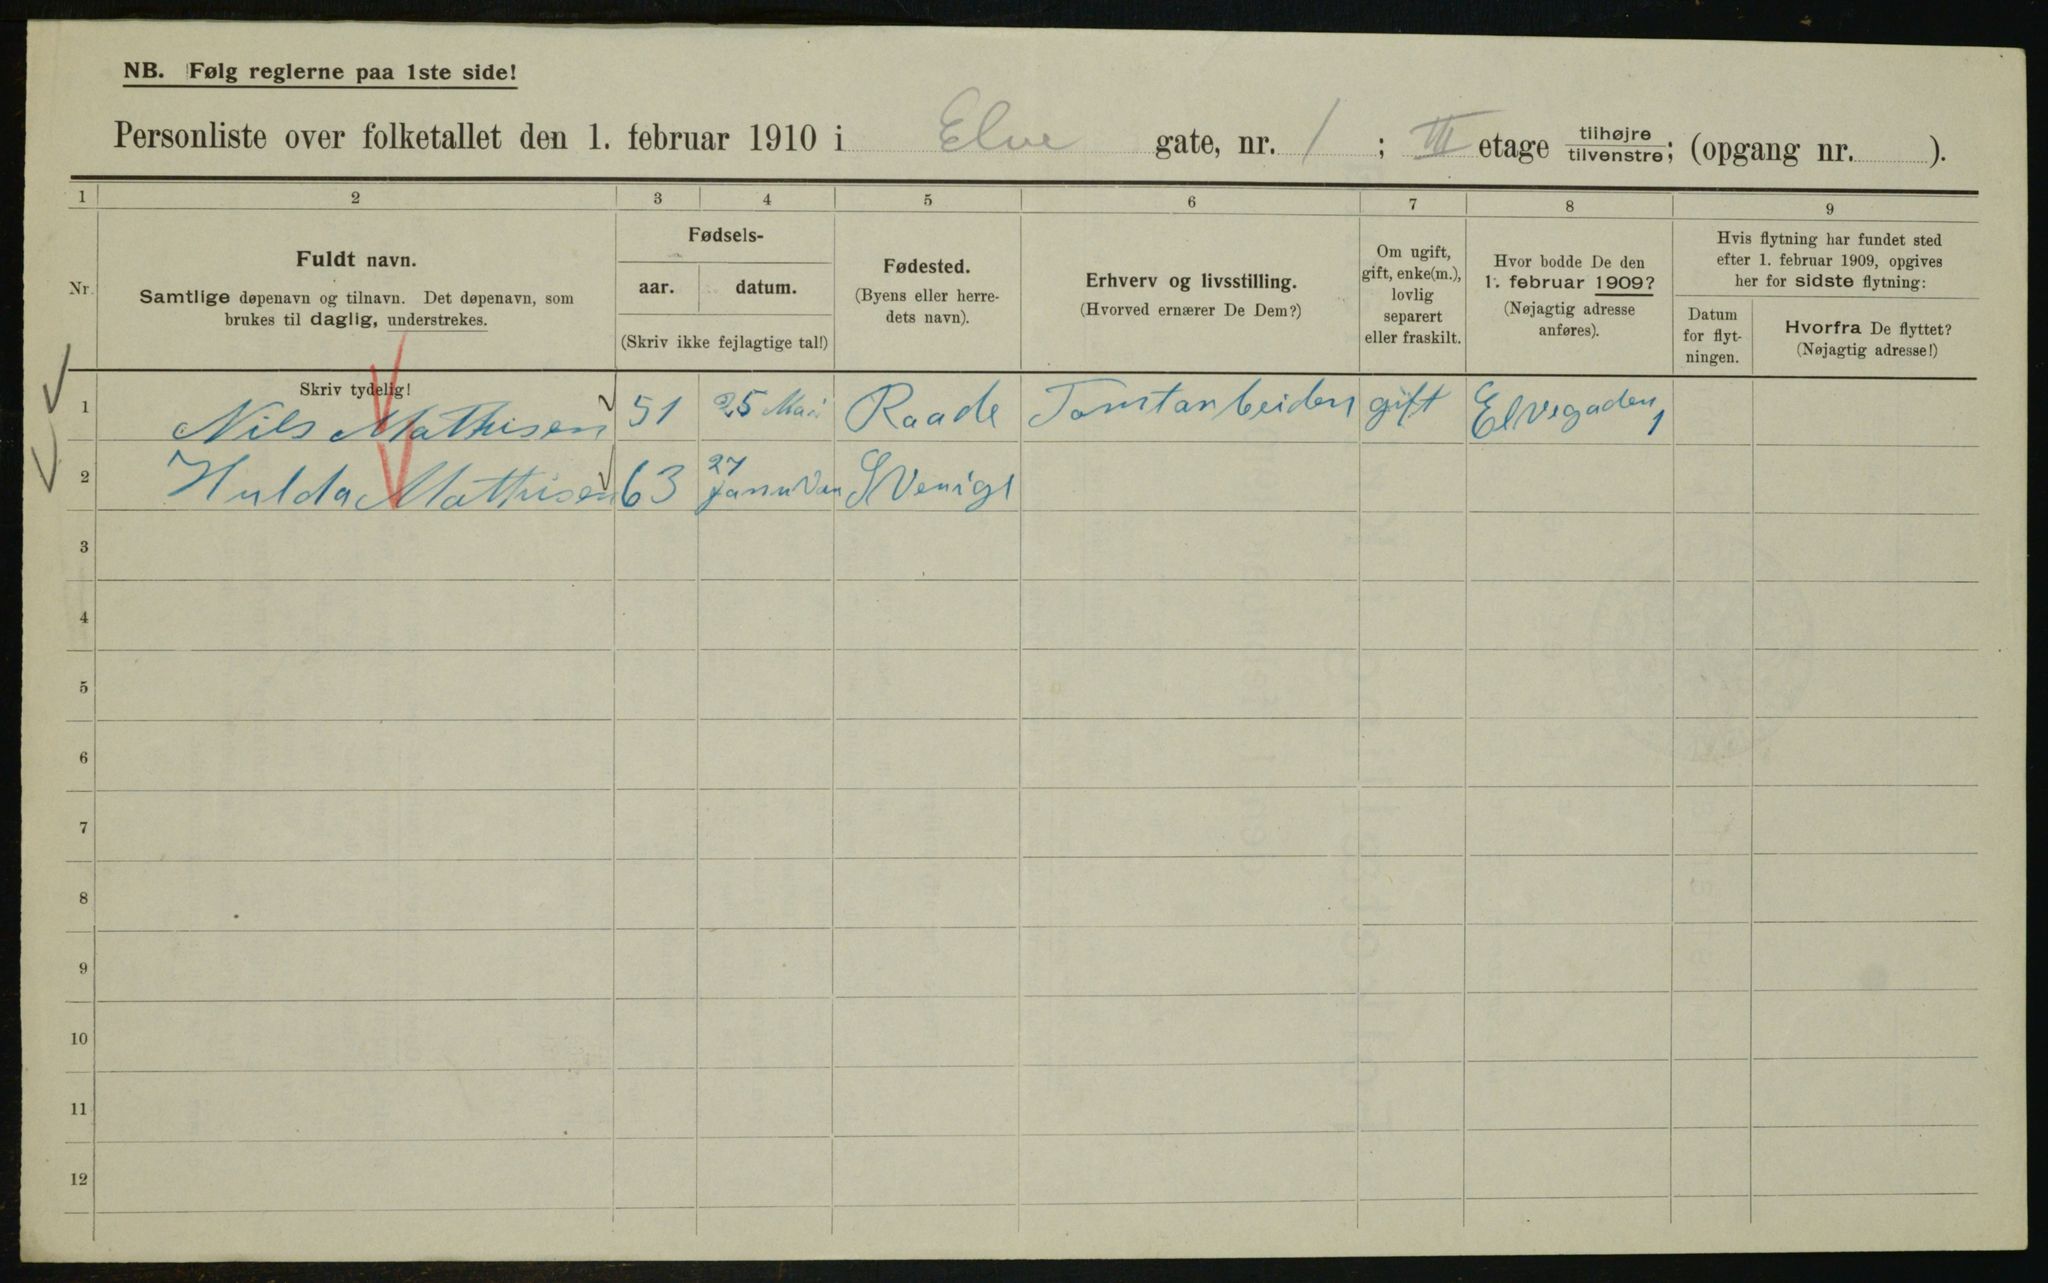 NB. Følg reglerne paa 1ste side!
Personliste over folketallet den 1. februar 1910 i Elve gate, nr. 1 ; III etage tilhøjre/tilvenstre; (opgang nr. ).
1 2 3 4 5 6 7 8 9
Nr.
Fuldt navn.
Samtlige døpenavn og tilnavn. Det døpenavn, som
brukes til daglig, understrekes.
Fødsels-
aar. datum.
(Skriv ikke fejlagtige tal!)
Fødested.
(Byens eller herre-
dets navn).
Erhverv og livsstilling.
(Hvorved ernærer De Dem?)
Om ugift,
gift, enke(m.),
lovlig
separert
eller fraskilt.
Hvor bodde De den
1. februar 1909?
(Nøjagtig adresse
anføres).
Hvis flytning har fundet sted
efter 1. februar 1909, opgives
her for sidste flytning:
Datum
for flyt-
ningen.
Hvorfra De flyttet?
(Nøjagtig adresse!)
Skriv tydelig!
1 Nils Mathisen 51 25 Mai Raade Tomtarbeider gift Elvegaden 1
2 Hulda Mathisen 63 27 Januvar SVenige
3
4
5
6
7
8
9
10
11
12